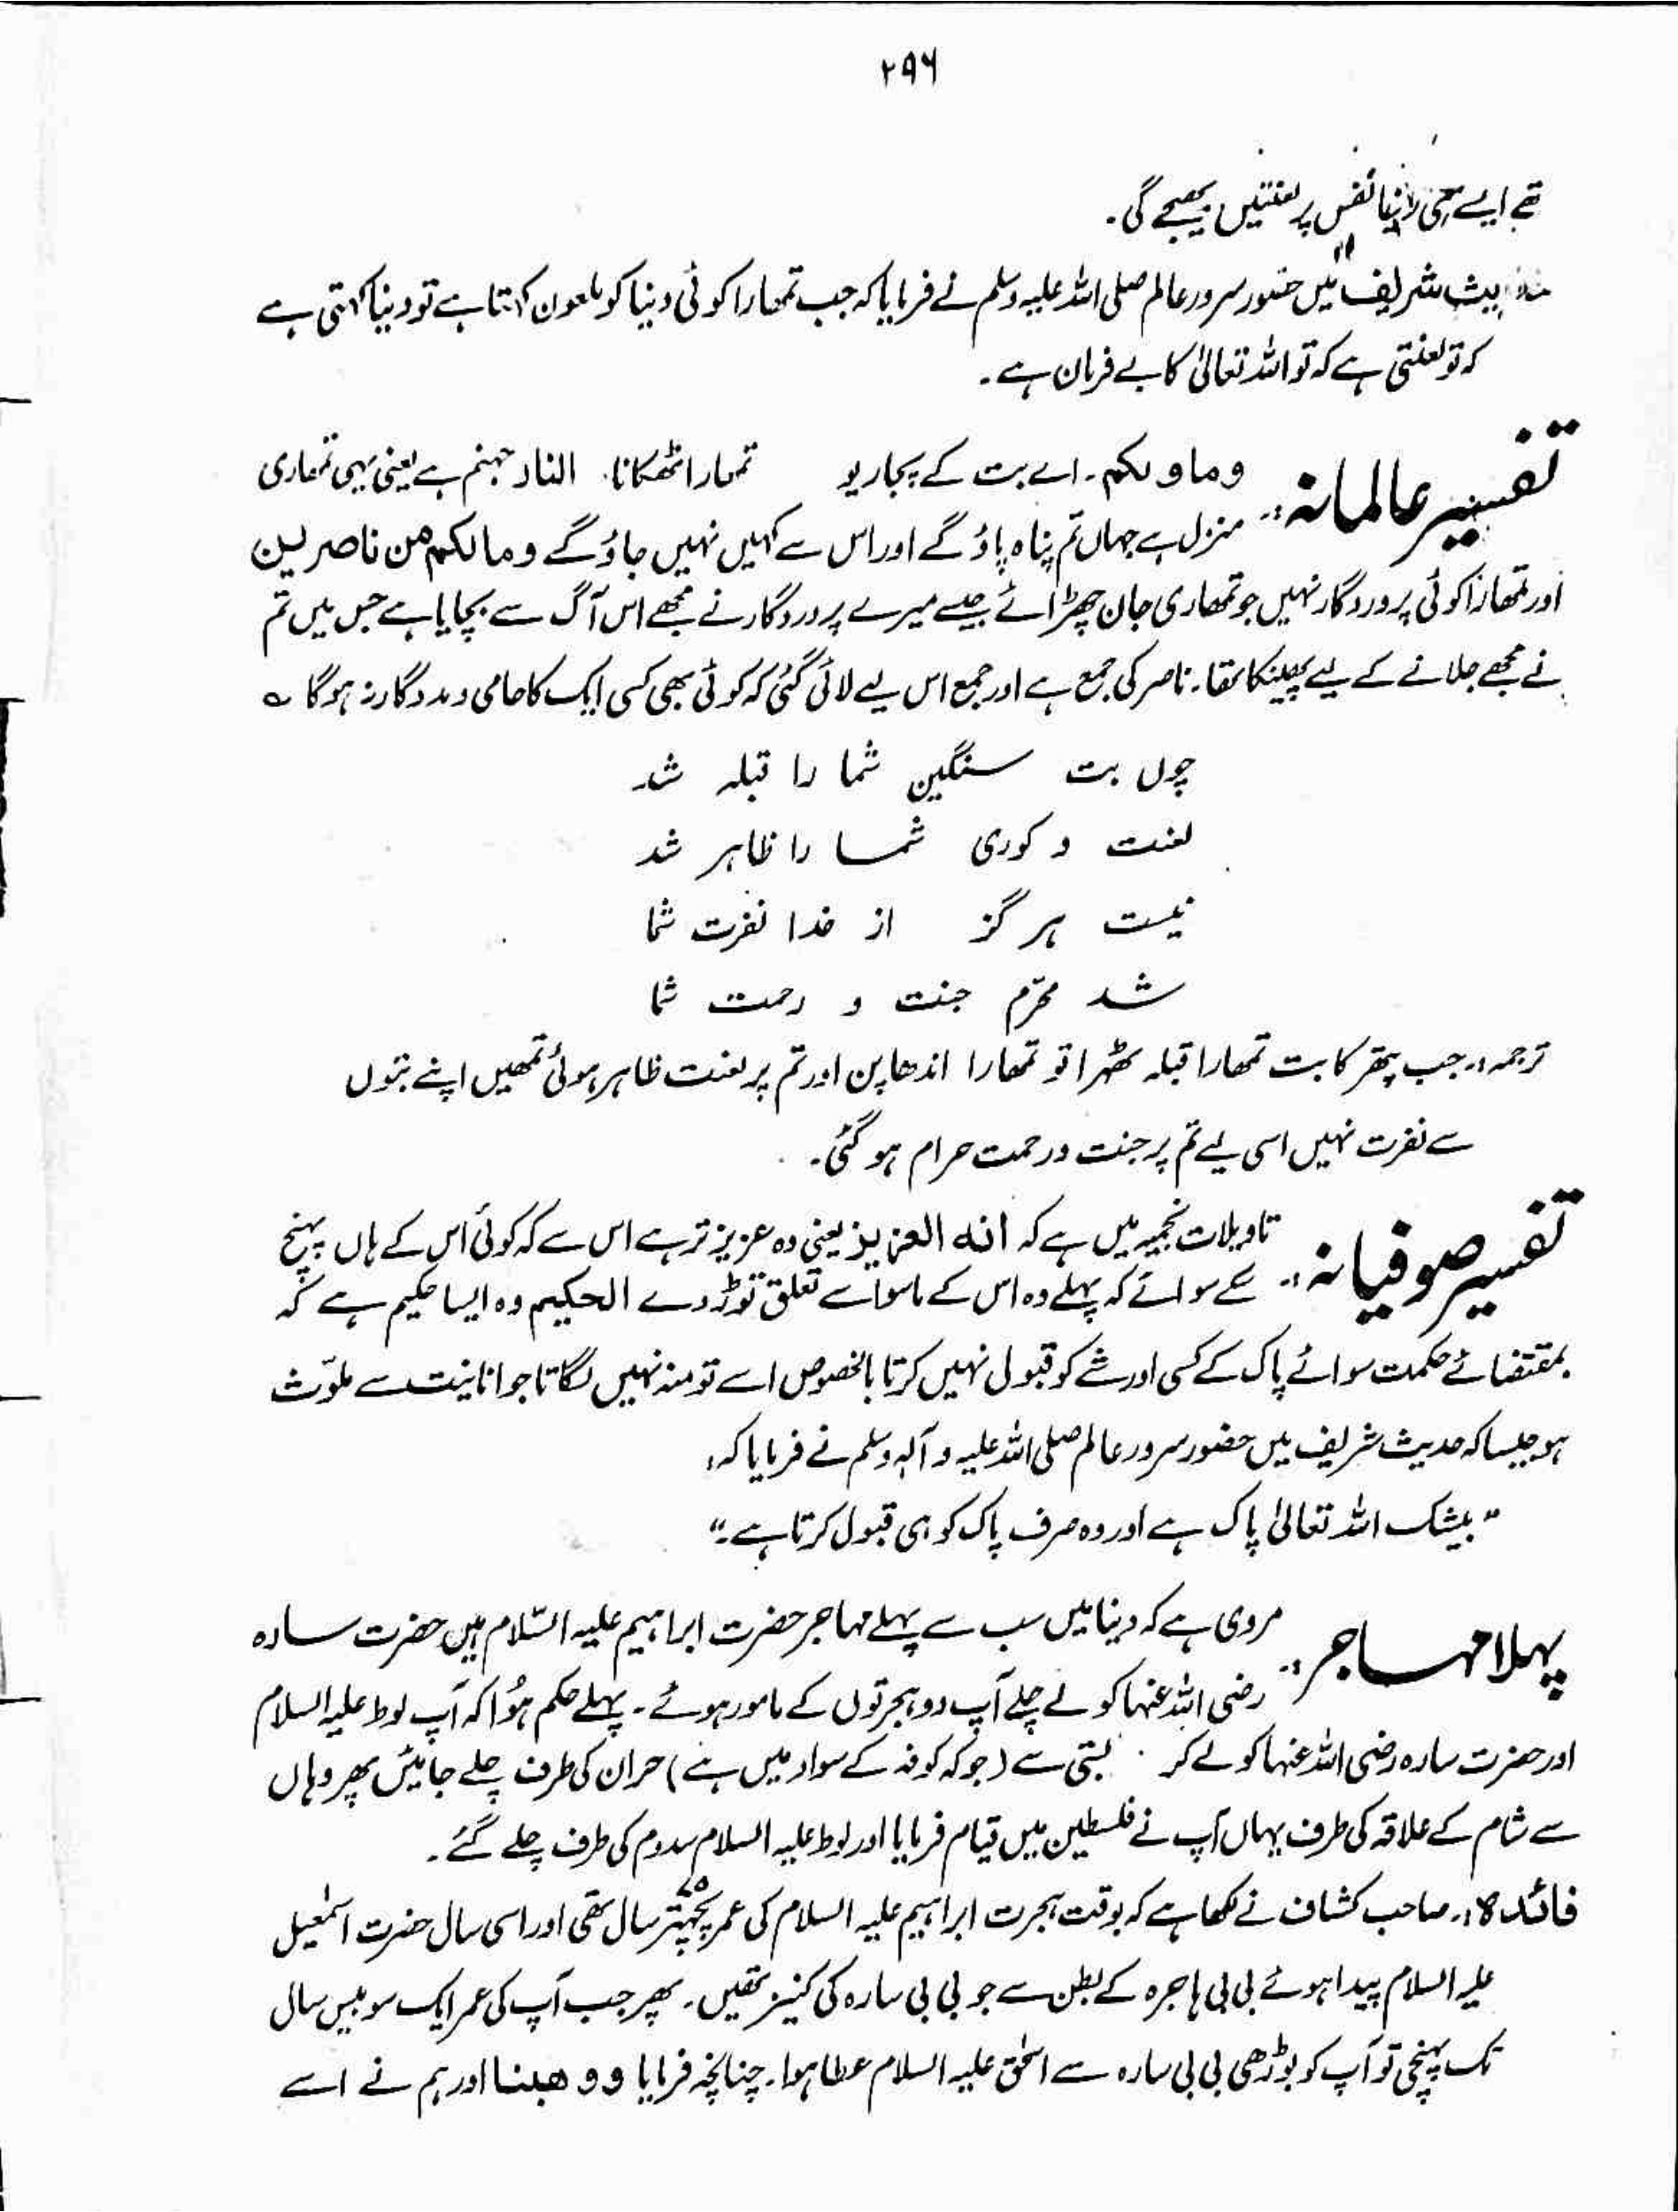 ۲۹۶
تھے ایسے ہی دنیا نفس پر لعنتیں بھیجے گی۔
حدیث شریف میں حضور سرور عالم صلی اللہ علیہ وسلم نے فرمایا کہ جب تمھارا کوئی دنیا کو ملعون کہتا ہے تو دنیا کہتی ہے
کہ تو لعنتی ہے کہ تو اللہ تعالیٰ کا بے فرمان ہے۔
تفسیر عالمانہ:۔ وماوٰىكم۔ اے بت کے پجاریو تمہارا ٹھکانا۔ النار جہنم ہے یعنی یہی تمھاری
منزل ہے جہاں تم پناہ پاؤ گے اور اس سے کہیں نہیں جاؤ گے ومالکم من ناصرین
اور تمھارا کوئی پروردگار نہیں جو تمھاری جان چھڑائے جیسے میرے پروردگار نے مجھے اس آگ سے بچایا ہے جس میں تم
نے مجھے جلانے کے لیے پھینکا تھا۔ ناصر کی جمع ہے اور جمع اس لیے لائی گئی کہ کوئی بھی کسی ایک کا حامی و مددگار نہ ہوگا ؎
چوں بت سنگین شما را قبلہ شد
لعنت و کوری شما را ظاہر شد
نیست ہرگز از خدا نفرت شما
شد محرّم جنت و رحمت شما
ترجمہ:۔ جب پتھر کا بت تمھارا قبلہ ٹھہرا تو تمھارا اندھاپن اور تم پر لعنت ظاہر ہوئی تمھیں اپنے بتوں
سے نفرت نہیں اسی لیے تم پر جنت و رحمت حرام ہو گئی۔
تفسیر صوفیانہ:۔ تاویلات نجمیہ میں ہے کہ انه العزیز یعنی وہ عزیز تر ہے اس سے کہ کوئی اس کے ہاں پہنچ
سکے سوائے کہ پہلے وہ اس کے ماسوا سے تعلق توڑ دے الحکیم وہ ایسا حکیم ہے کہ
بمقتضائے حکمت سوائے پاک کے کسی اور شے کو قبول نہیں کرتا بالخصوص اسے تو منہ نہیں لگاتا جو انانیت سے ملوّث
ہو جیسا کہ حدیث شریف میں حضور سرور عالم صلی اللہ علیہ و آلہ وسلم نے فرمایا کہ:
"بیشک اللہ تعالیٰ پاک ہے اور وہ صرف پاک کو ہی قبول کرتا ہے۔"
پہلا مہاجر:۔ مروی ہے کہ دینا میں سب سے پہلے مہاجر حضرت ابراہیم علیہ السّلام ہیں حضرت سارہ
رضی اللہ عنہا کو لے چلے آپ دو ہجرتوں کے مامور ہوئے۔ پہلے حکم ہُوا کہ آپ لوط علیہ السلام
اور حضرت سارہ رضی اللہ عنہا کو لے کر بستی سے (جو کہ کوفہ کے سواد میں ہے) حران کی طرف چلے جائیں پھر وہاں
سے شام کے علاقہ کی طرف یہاں آپ نے فلسطین میں قیام فرمایا اور لوط علیہ السلام سدوم کی طرف چلے گئے۔
فائدہ:۔ صاحب کشاف نے لکھا ہے کہ بوقت ہجرت ابراہیم علیہ السلام کی عمر پچھتر ۷۵ سال تھی اور اسی سال حضرت اسمٰعیل
علیہ السلام پیدا ہوئے بی بی ہاجرہ کے بطن سے جو بی بی سارہ کی کنیز تھیں۔ پھر جب آپ کی عمر ایک سو بیس سال
تک پہنچی تو آپ کو بوڑھی بی بی سارہ سے اسحٰق علیہ السلام عطا ہوا۔ چنانچہ فرمایا ووهبنا اور ہم نے اسے